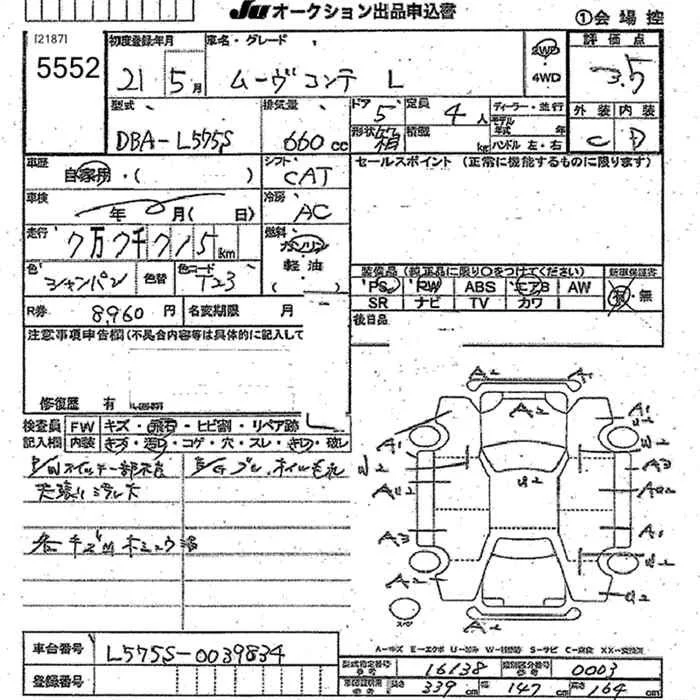 JU オークション出品申込書
①会場控
[2187]
5552
初度登録年月
21 5月
車名・グレード
ムーヴコンテ L
2WD
4WD
評価点
3.5
型式
DBA-L575S
排気量
660cc
ドア 5
定員 4人
形状 箱
積載 kg
ディーラー・並行
モデル年式 年
ハンドル 左・右
外装 内装
C D
車歴
自家用・( )
シフト
CAT
セールスポイント (正常に機能するものに限ります)
車検
年 月( 日)
冷房
AC
走行
7万7千715km
燃料
ガソリン
軽油
( )
色
シャンパン
色替
色コード
T23
装備品 (純正品に限り○をつけてください)
新車保証書
PS RW ABS エアB AW
SR ナビ TV カワ
有・無
R券
8,960円
名変期限 月
後日品
注意事項申告欄(不具合内容等は具体的に記入して
修復歴 有
検査員 FW キズ・飛石・ヒビ割・リペア跡
記入欄 内装 キズ・汚れ・コゲ・穴・スレ・キレ・破レ
P/Wスイッチ一部不良
E/G ブレ、オイルもれ
天張りミダレ大
各キズ凹
A2 A1
A2
A1 A1
W2 W2
U2
A3
AU2
A3 A1
W2
A2
A2
スペア
A-キズ E-エクボ U-凹み S-サビ C-腐食 XX-交換済
車台番号
L575S-0039834
登録番号
型式指定番号 16138
類別区分番号 0003
長さ 339cm
幅 147cm
高さ 164cm